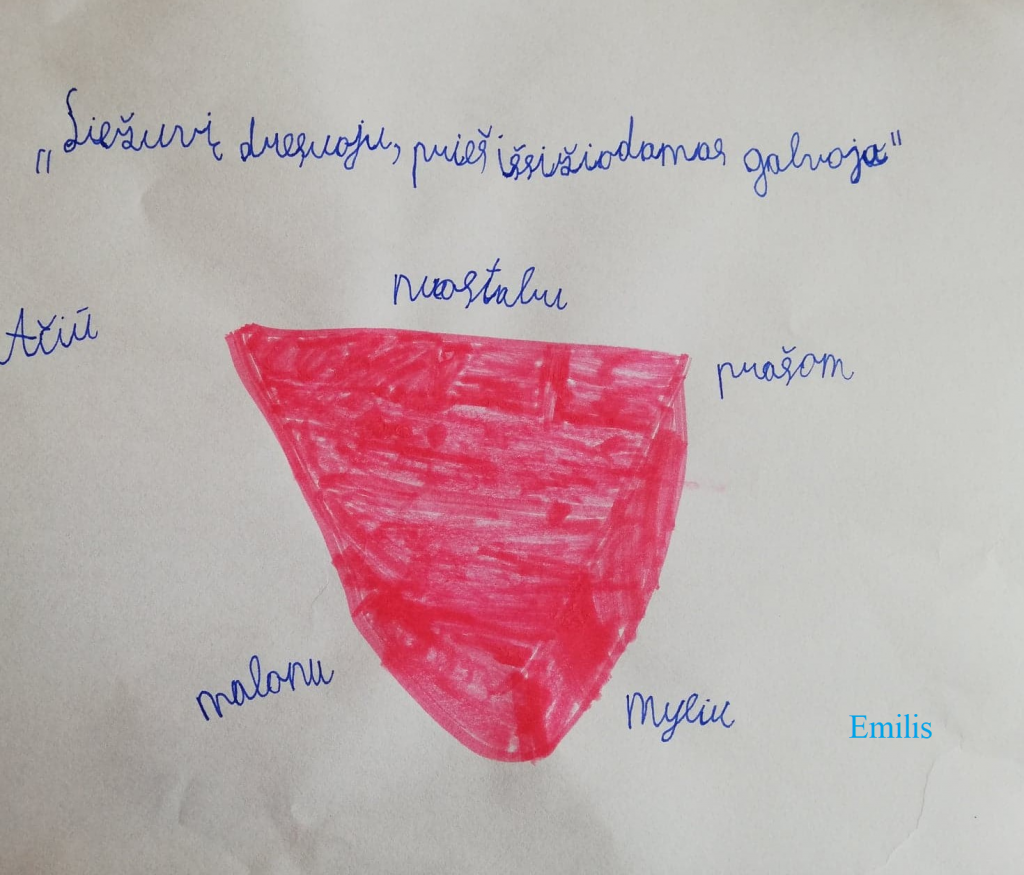 „Liežuvį dresuoju, prieš išsižiodamas galvoju"
nuostabu
Ačiū
prašom
malonu
Myliu
Emilis